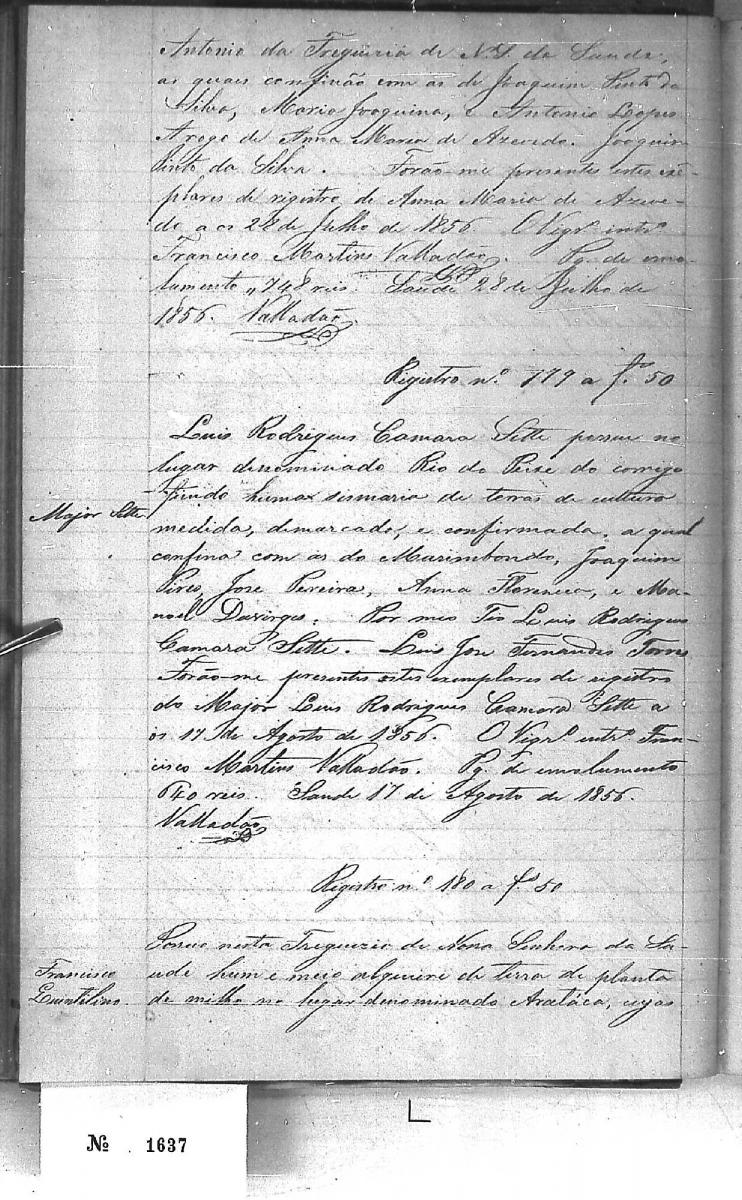 Antonio da Freguezia de N. S. da Saude,
as quaes confinão com as de Joaquim Pinto da
Silva, Maria Joaquina, e Antonio Lopes
Arogo de Anna Maria de Azevedo. Joaquim
Pinto da Silva. Forão-me presentes estes exem-
plares de registro de Anna Maria de Azeve-
do a os 28 de Julho de 1856. O Vigrº intrº
Francisco Martins Valladão. Pg. de emo-
lumento 748 reis. Saude 28 de Julho de
1856. Valladão
Registro nº 179 a fº 50
Luis Rodrigues Camara Sette possue no
lugar denominado Rio do Peixe do corrego
fundo huma sismaria de terras de cultura
Major Sette
medida, demarcada, e confirmada, a qual
confina com as do Marimbondo, Joaquim
Pires, Jose Pereira, Anna Florencia, e Ma-
noel Domingos. Por meo Tio Luis Rodrigues
Camara Sette. Luis Jose Fernandes Torres
Forão-me presentes estes exemplares de registro
do Major Luis Rodrigues Camara Sette a
os 17 de Agosto de 1856. O Vigrº intrº Fran-
cisco Martins Valladão. Pg. de emolumento
640 reis. Saude 17 de Agosto de 1856.
Valladão
Registro nº 180 a fº 50
Possuo nesta Freguezia de Nossa Senhora da Sa-
ude hum e meio alqueire de terra de planta
Francisco
Quintilino
de milho no lugar denominado Arataca, cujas
Nº 1637